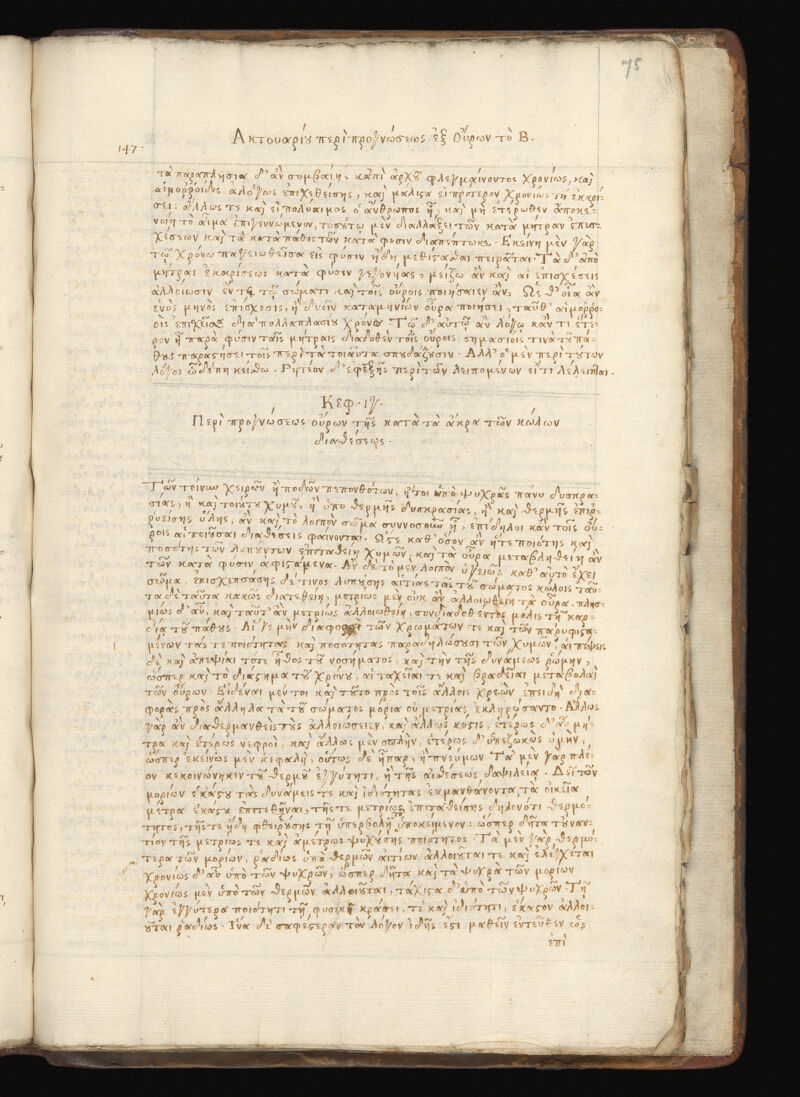 75
147·
Ακτουαρίου περὶ προγνώσεως ἐξ Οὔρων τὸ Β.
τὰ παραπλήσια δ' ἂν συμβαίη, κἀπὶ ἀρχοῦ φλεγμαίνοντος χρονίως, καὶ
αἱμορροΐδος ἀλόγως ἐπισχεθείσης, καὶ μάλιστα εἰ πρότερον χρονίως τῇ ἐκκρί-
σει: ἄλλως τε καὶ εἰ πολύαιμος ὁ ἄνθρωπος ᾖ, καὶ μὴ ἑτέρωθεν ἀποκε-
νοίη τὸ αἷμα ἐπιγεννώμενον, τοσούτῳ μὲν διαλλάξει τῶν κατὰ μήτραν ἐπισ-
χέσεων καὶ τὰ κατὰ πάθος τῶν κατὰ φύσιν διαπέπτωκε. Ἐκείνη μὲν γὰρ
τῷ χρόνῳ παγειωθεῖσα εἰς φύσιν ἤδη μεθίστασθαι πειρᾶται. Τὰ δ' ἀπὸ
μήτρας ἐκκρίσεως κατὰ φύσιν γεγονυίας, μείζω ἂν καὶ αἱ ἐπισχέσεις
ἀλλοίωσιν ἔν τε τῷ σώματι καὶ τοῖς οὔροις ποιήσαιεν ἂν, Ὡς θ' οἷα ἂν
ἑνὸς μηνὸς ἐπίσχεσις, ἢ δυοῖν καταμηνίων οὖρα ποιήσει, ταῦθ' αἱμορρο-
ῒς ἐπισχεῖσα διὰ πολλαπλασίου χρόνου. Τῷ δ' αὐτῷ ἂν λόγῳ κἄν τι ἕτε-
ρον ᾖ παρὰ φύσιν ταῖς μήτραις διαδοθὲν τοῖς οὔροις, σημασίαις τινὰ τοῦ πά-
θους παραστήσει τοῖς περὶ τὰ τοιαῦτα σπουδάζουσιν. Ἀλλ' ὁ μὲν περὶ τούτων
λόγος ὧδέ πη κείσθω. Ῥητέον δ' ἐφεξῆς περὶ τῶν λειπομένων εἴ τι λέλειπται.
Κεφ. ιγ.
Περὶ προγνώσεως οὔρων τῆς κατὰ τὰ ἄκρα τῶν κώλων
διαθέσεως.
Τῶν τοίνυν χειρῶν ἢ ποδῶν πεπονθότων, ἤτοι ὑπὸ ψυχρᾶς πάνυ δυσκρα-
σίας, ἢ καὶ τοιούτου χυμοῦ, ἢ ὑπὸ θερμῆς δυσκρασίας, ἢ καὶ θερμῆς ἐπιρ-
ρυείσης ὕλης, ἂν καὶ τὸ λοιπὸν σῶμα συννοσοῦν ᾖ, ἐπίδηλοι κἂν τοῖς οὔ-
ροις αἱ τοιαῦται διαθέσεις φαίνονται. Ὥστε καθ' ὅσον ἂν ἥ τε ποιότης καὶ
ποσότης τῶν λυπούντων ἐπιταθείη χυμῶν, καὶ τὰ οὖρα μεταβληθείη ἂν
τῶν κατὰ φύσιν ἀφιστάμενα. Ἂν δὲ τὸ μὲν λοιπὸν ὑγειῶς καθ' αὑτὸ ἔχει
σῶμα, ἐπισκεψάσης δέ τινος λυπούσης αἰτίας τὰς τοῦ σώματος κώλοις ταύ-
τα δὲ ταῦτα κακῶς διατεθείη, μετρίως μὲν οὐκ ἂν ἀλλοιωθείη τὰ οὖρα. πλησ-
μίως δ' αὖ, καὶ ταῦτ' ἂν μετρίως ἀλλοιωθείη, συνδιαδοθέντος μόλις τῇ καρ-
δίᾳ τοῦ πάθους. Αἵ γε μὴν διαφοραὶ τῶν χρωμάτων τε καὶ τῶν παρυφιστα-
μένων τάς τε ποιότητας καὶ ποσότητας παραδηλώσουσι τῶν χυμῶν, αἱ πέψεις
δὲ καὶ ἀπεψίαι τό τε ἦθος τοῦ νοσήματος, καὶ τὴν τῆς δυνάμεως ῥώμην,
ὥσπερ καὶ τὸ διάστημα τοῦ χρόνου, αἱ ταχεῖαί τε καὶ βραδεῖαι μεταβολαὶ
τῶν οὔρων. Εἰδέναι μέντοι καὶ τοῦτο πρὸς τοῖς ἄλλοις χρεὼν ἐπειδὴ δια-
φορὰς πρὸς ἄλληλα τὰ τοῦ σώματος μόρια οὐ μετρίας ἐκληρώσαντο. Ἄλλως
γὰρ ἂν διαθερμανθεὶς ποὺς ἀλλοιώσειεν, καὶ ἄλλως κύστις, ἑτέρως δ' αὖ μή-
τρα καὶ ἑτέρως νεφροὶ, καὶ ἄλλως μὲν σπλὴν, ἑτέρως δ' ὑπεζωκὼς ὑμὴν,
ὥσπερ ἐκείνως μὲν κεφαλὴ, οὕτως δὲ ἧπαρ, ἢ πνεύμων. Τὰ μὲν γὰρ πλέ-
ον κεκοινώνηκεν τοῦ θερμοῦ ἐγγύτητι, ἢ τῆς αἰσθήσεως δαψιλείᾳ. Δεῖ τῶν
μορίων ἑκάστου τὰς δυνάμεις τε καὶ ἰδιότητας ἐκμανθάνοντα, τὰ οἰκεῖα
μέτρα ἑκάστου ἐπιτεθῆναι, τῆς τε μετρίως ἐπιταθείσης δηλονότι θερμό-
τητος, τῆς τε ἤδη φθειρούσης τῇ ὑπερβολῇ ὑποκείμενον: ὥσπερ δῆτα τοὐναν-
τίον τῆς μετρίως τε καὶ ἀμέτρως ψυχούσης ποιότητος. Τὰ μὲν γὰρ θερμό-
τερα τῶν μορίων, ῥαδίως ὑπὸ θερμῶν αἰτίων ἀλλοιοῦταί τε καὶ ἐλέγχεται
χρονίως δ' αὖ ὑπὸ τῶν ψυχρῶν, ὥσπερ δῆτα καὶ τὰ ψυχρὰ τῶν μορίων
χρονίως μὲν ὑπὸ τῶν θερμῶν ἀλλοιοῦται, τάχιστα δ' ὑπὸ τῶν ψυχρῶν. Τῇ
γὰρ ἐγγύτερα ποιότητι τῇ φυσικῇ κράσει, τε καὶ ἰδιότητι, ἕκαστον ἀλλοι-
οῦται ῥᾳδίως. Ἵνα δὲ σαφέστερον τὸν λόγον ἴδῃς ἔστι μαθεῖν ἐντεῦθεν ὡς
ἐπὶ